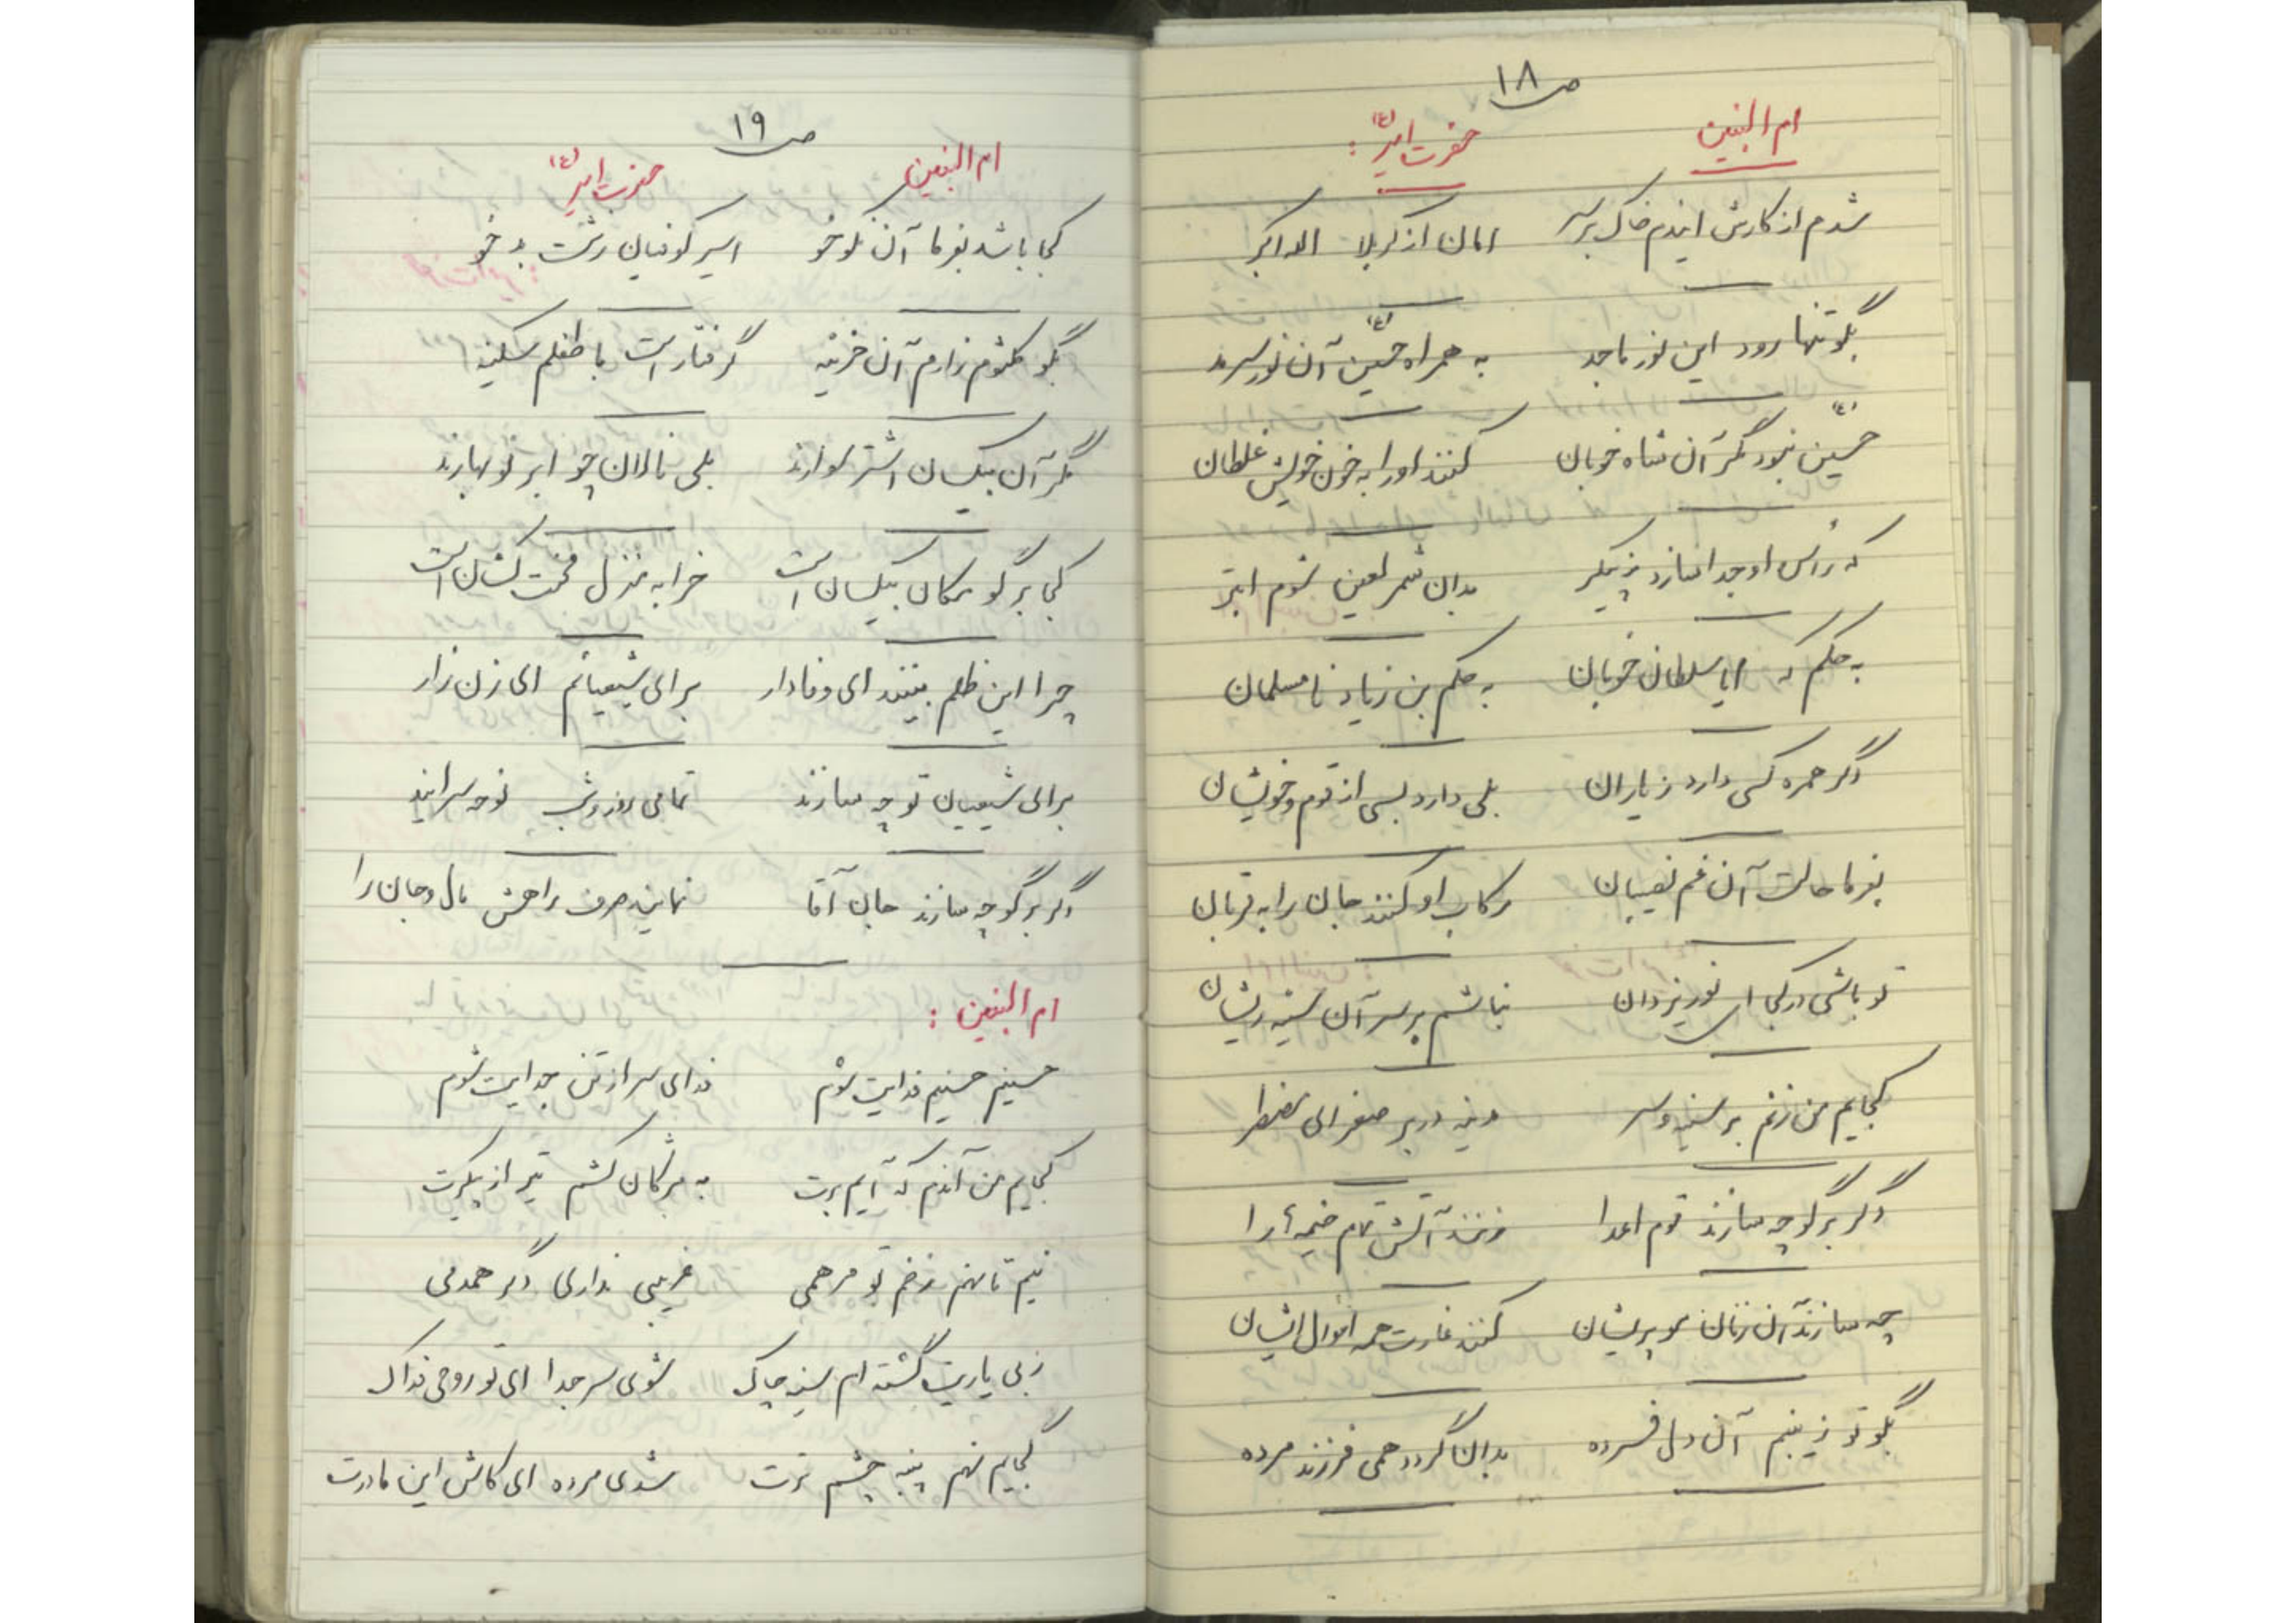 ص ۱۸
ام البنین حضرت امیر (ع) :
شدم از کارش ایندم خاک بر سر امان از کربلا الله اکبر
بگو تنها رود این نور ماجد به همراه حسین (ع) آن نور سرمد
حسین (ع) نبود مگر آن شاه خوبان کنند او را به خون خویش غلطان
که رأس او جدا سازد ز پیکر بدان شمر لعین شوم ابتر
به حکم که ایا سلطان خوبان به حکم بن زیاد نامسلمان
دگر همره کسی دارد ز یاران بلی دارد بسی از قوم و خویشان
بفرما حالت آن غم نصیبان رکاب او کنند جان را به قربان
تو باشی در کجا ای نور یزدان نباشم بر سر آن سینه ریشان
کجایم من زنم بر سینه و سر مدینه در بر صغرای مضطر
دگر برگو چه سازند قوم اعدا زنند آتش تمام خیمه‌ها را
چه سازند آن زنان مو پریشان کنند غارت همه اموال ایشان
بگو تو زینبم آن دل فسرده بدان گردد همی فرزند مرده
ص ۱۹
ام البنین حضرت امیر (ع)
کجا باشد بفرما آن نکو خو اسیر کوفیان زشت بد خو
بگو کلثوم زارم آن حزینه گرفتار است با طفلم سکینه
مگر آن بیکسان اشتر سوارند بلی نالان چو ابر نوبهارند
کجا برگو مکان بیکسان است خرابه منزل محنت کشان است
چرا این ظلم بینند ای وفادار برای شیعیانم ای زن زار
برای شیعیان تو چه سازند تمامی روز و شب نوحه سرایند
دگر برگو چه سازند جان آقا نمایند صرف راهش مال و جان را
ام البنین :
حسینم حسینم فدایت شوم فدای سر از تن جدایت شوم
کجایم من آندم که آیم برت به مژگان کشم تیر از پیکرت
نیم تا نهم زخم تو مرهمی غریبی نداری دگر همدمی
ز بی یاریت گشته ام سینه چاک شوی سر جدا ای تو روحی فداک
کجایم نهم پنبه چشم ترت شدی مرده ای کاش این مادرت